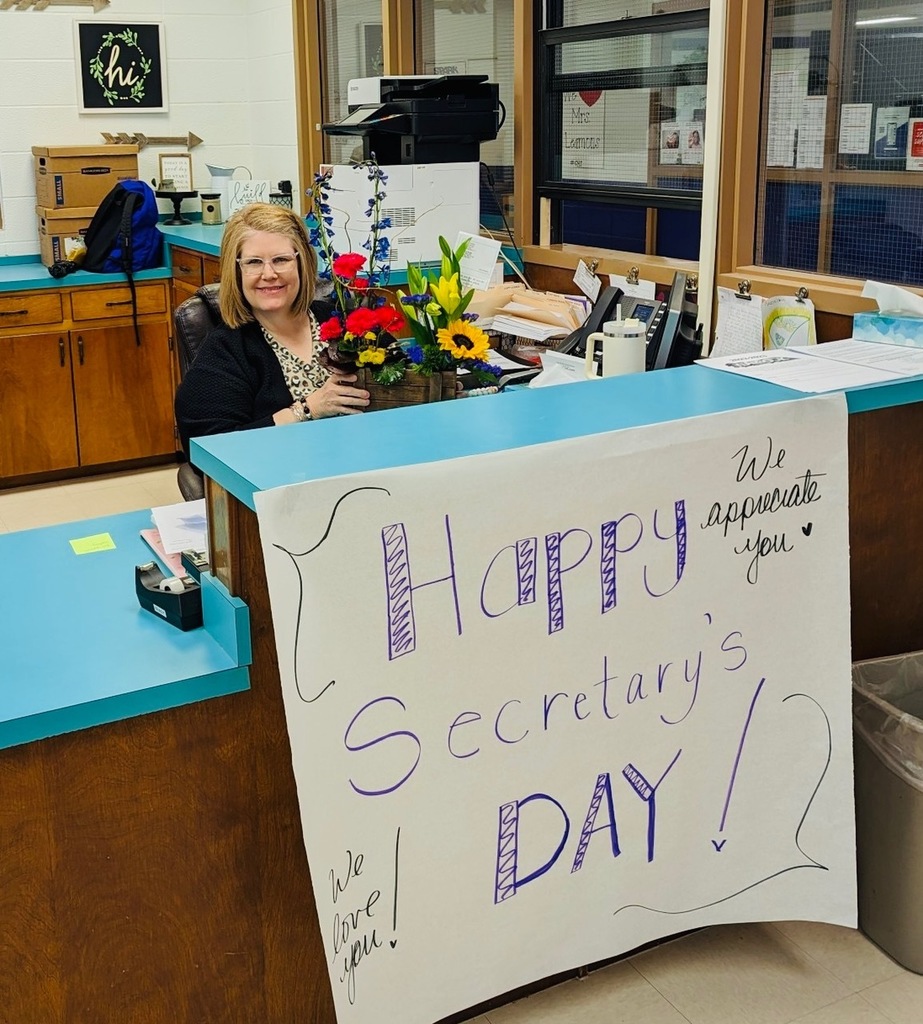 hi
We
Mrs
Happy
We
appreciate
you
Secretary's
DAY!
We
love
you!